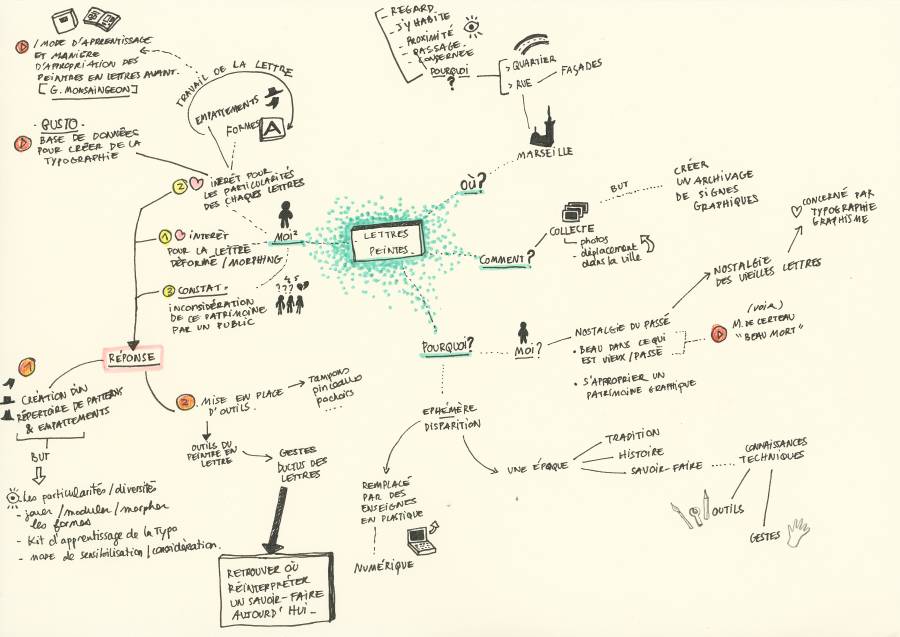 / MODE D'APPRENTISSAGE
ET MANIÈRE
D'APPROPRIATION DES
PEINTRES EN LETTRES AVANT.
[ G. MONSAINGEON ]
- GUSTO -
BASE DE DONNÉES
POUR CRÉER DE LA
TYPOGRAPHIE
TRAVAIL DE LA LETTRE
EMPATTEMENTS
FORMES
A
2
INTÉRÊT POUR
LES PARTICULARITÉS
DES CHAQUES LETTRES
1
INTÉRÊT
POUR LA LETTRE
DÉFORMÉ / MORPHING
3
CONSTAT.
INCONSIDÉRATION
DE CE PATRIMOINE
PAR UN PUBLIC
???
MOI?
LETTRES
PEINTES
- REGARD
- J'Y HABITE
- PROXIMITÉ
- PASSAGE
- CONSERVÉE
POURQUOI
?
> QUARTIER
> RUE
FAÇADES
MARSEILLE
OÙ?
COMMENT?
COLLECTE
photos
- déplacement
dans la ville
BUT
CRÉER
UN ARCHIVAGE
DE SIGNES
GRAPHIQUES
POURQUOI?
MOI?
NOSTALGIE DU PASSÉ
• BEAU DANS CE QUI
EST VIEUX / PASSÉ
• S'APPROPRIER UN
PATRIMOINE GRAPHIQUE
NOSTALGIE
DES VIEILLES LETTRES
CONCERNÉ PAR
TYPOGRAPHIE
GRAPHISME
(voir)
M. DE CERTEAU
"BEAU MORT"
EPHÉMÈRE
DISPARITION
REMPLACÉ
PAR DES
ENSEIGNES
EN PLASTIQUE
NUMÉRIQUE
UNE ÉPOQUE
TRADITION
HISTOIRE
SAVOIR-FAIRE
CONNAISSANCES
TECHNIQUES
OUTILS
GESTES
RÉPONSE
1
CRÉATION D'IN
RÉPERTOIRE DE PATTERNS
& EMPATTEMENTS
BUT
Les particularités / diversités
- jouer / moduler / morpher
les formes
- Kit d'apprentissage de la Typo
- mode de sensibilisation / considération.
2
MISE EN PLACE
D'OUTILS.
Tampons
pinceaux
pochoirs
.....
OUTILS DU
PEINTRE EN
LETTRE
GESTES
DUCTUS DES
LETTRES
RETROUVER OÙ
RÉINTERPRÉTER
UN SAVOIR-FAIRE
AUJOURD'HUI_